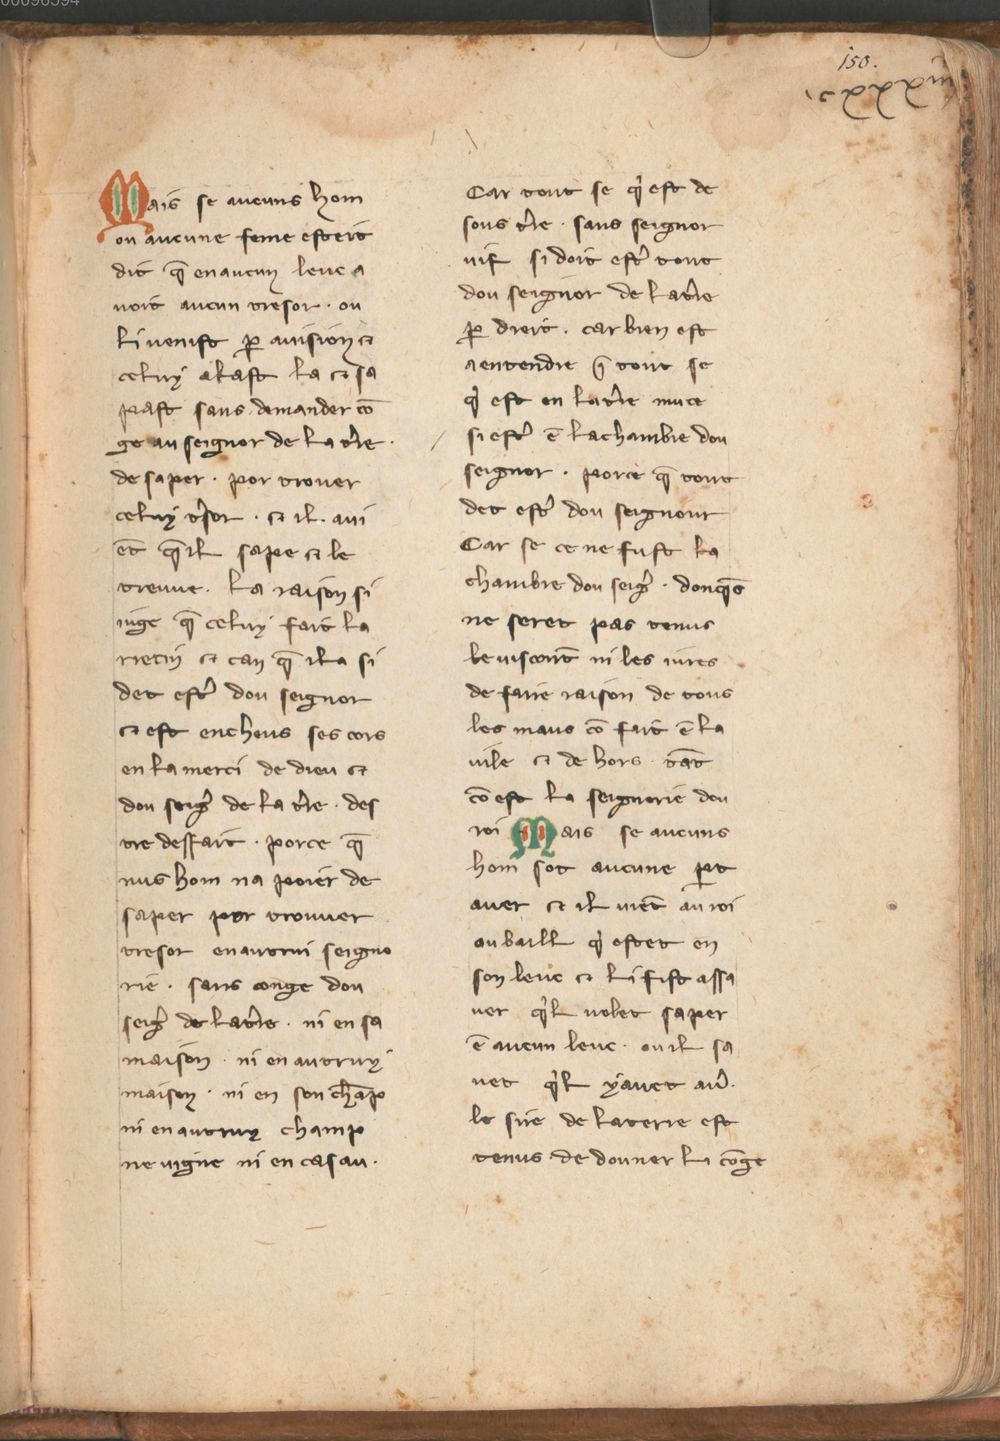 00096594
150.
Mais se aucuns hom
ou aucune feme estoit
dit q̄ en aucun leuc a
uoit aucun tresor · ou
li uenist p̱ auision ⁊
celuy alast la ⁊ sa
past sans demander cō
ge au seignor de la t̉re ·
de saper · por trouer
celuy t̉sor · ⁊ il · aui
ēt q̄ il sape ⁊ le
treuue · la raison si
iuge q̄ celuy fait la
recin ⁊ can q̄ il a si
det est̉ dou seignor
⁊ est encheus ses cors
en la merci de dieu ⁊
dou seig̉ de la t̉re · des
tre desfait · porce q̄
nus hom na poier de
saper por trouuer
tresor en autrui seigno
rie · sans conge dou
seig̉ de la t̉re · ni en sa
maison · ni en autruy
maison · ni en son chāp
ni en autruy champ
ne uigne ni en casau ·
Car tout se q̉ est de
sous t̉re · sans seignor
uif si doit est̉ tout
dou seignor de la t̉re
p̱ dreit · car bien est
a entendre q̄ tout se
q̉ est en la t̉re muce
si est̉ ē la chambre dou
seignor · porce q̄ tout
det est̉ dou seignour
Car se ce ne fust la
chambre dou seig̉ · donq̄s
ne seret pas tenus
le uiscont̄ ni les iures
de faire raison de tous
les maus cō fait ē la
uile ⁊ de hors · tāt
cō est la seignorie dou
roi Mais se aucuns
hom sot aucune p̱t
auer ⁊ il uiēt au roi
ou baill q̉ estet en
son leuc ⁊ li fist assa
uer q̉l uolet saper
ē aucun leuc · ou il sa
uet q̉l y auet aủ ·
le sire de la terre est
tenus de donner li cōge